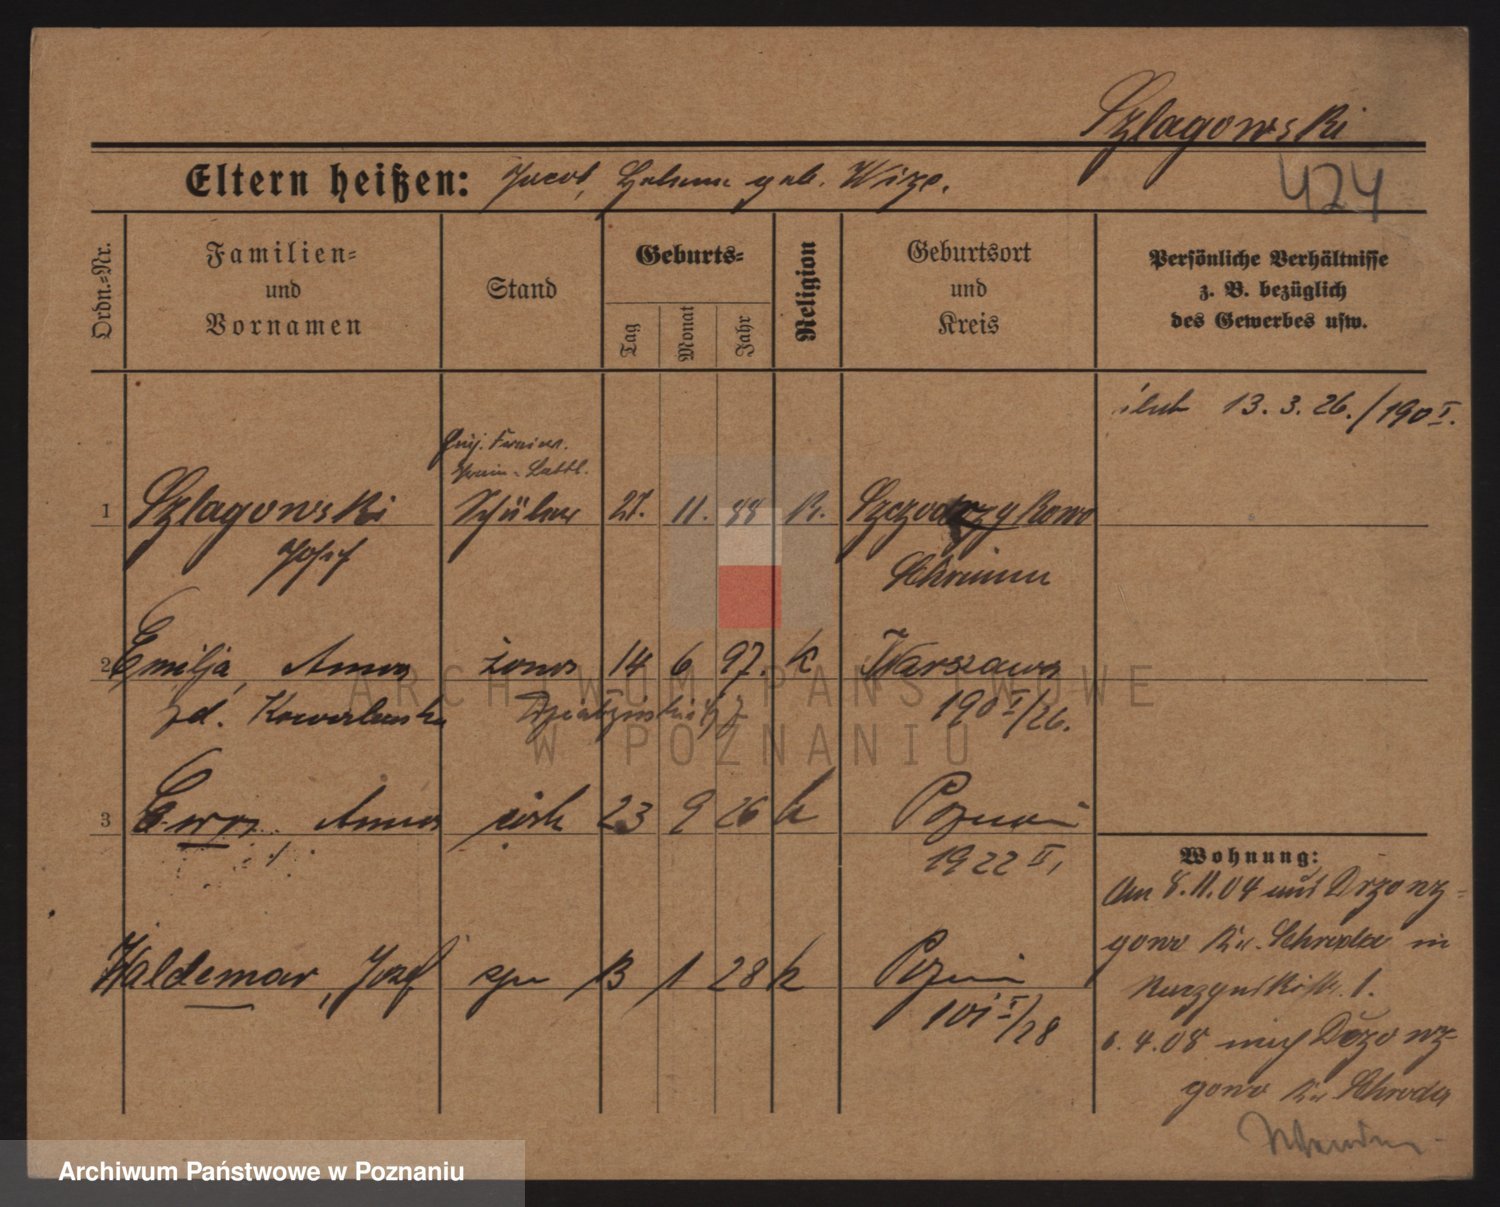 Szlagowski
424
Eltern heißen: Jacob, Helene geb. Wize.
Ordn.=Nr.
Familien=
und
Vornamen
Stand
Geburts=
Tag
Monat
Jahr
Religion
Geburtsort
und
Kreis
Persönliche Verhältnisse
z. B. bezüglich
des Gewerbes usw.
ślub 13. 3. 26./190 I.
1 Szlagowski Schüler 27. 11. 88 K. Szczodrzykowo
Josef Schrimm
2 Emilja, Anna żona 14 6 97. K Warszawa
zd. 190 I/26.
3 Ewa Anna córk 23 9 26 k Poznań
1922 II,
Waldemar, Józef syn 13 1 28 k Poznań
101 I/28
Wohnung:
Am 8.11.04 aus Drzonz=
gowo Kr. Schroda in
1.
6. 4.08 nach Drzonz=
gowo Kr. Schroda
ARCHIWUM PAŃSTWOWE
W POZNANIU
Archiwum Państwowe w Poznaniu